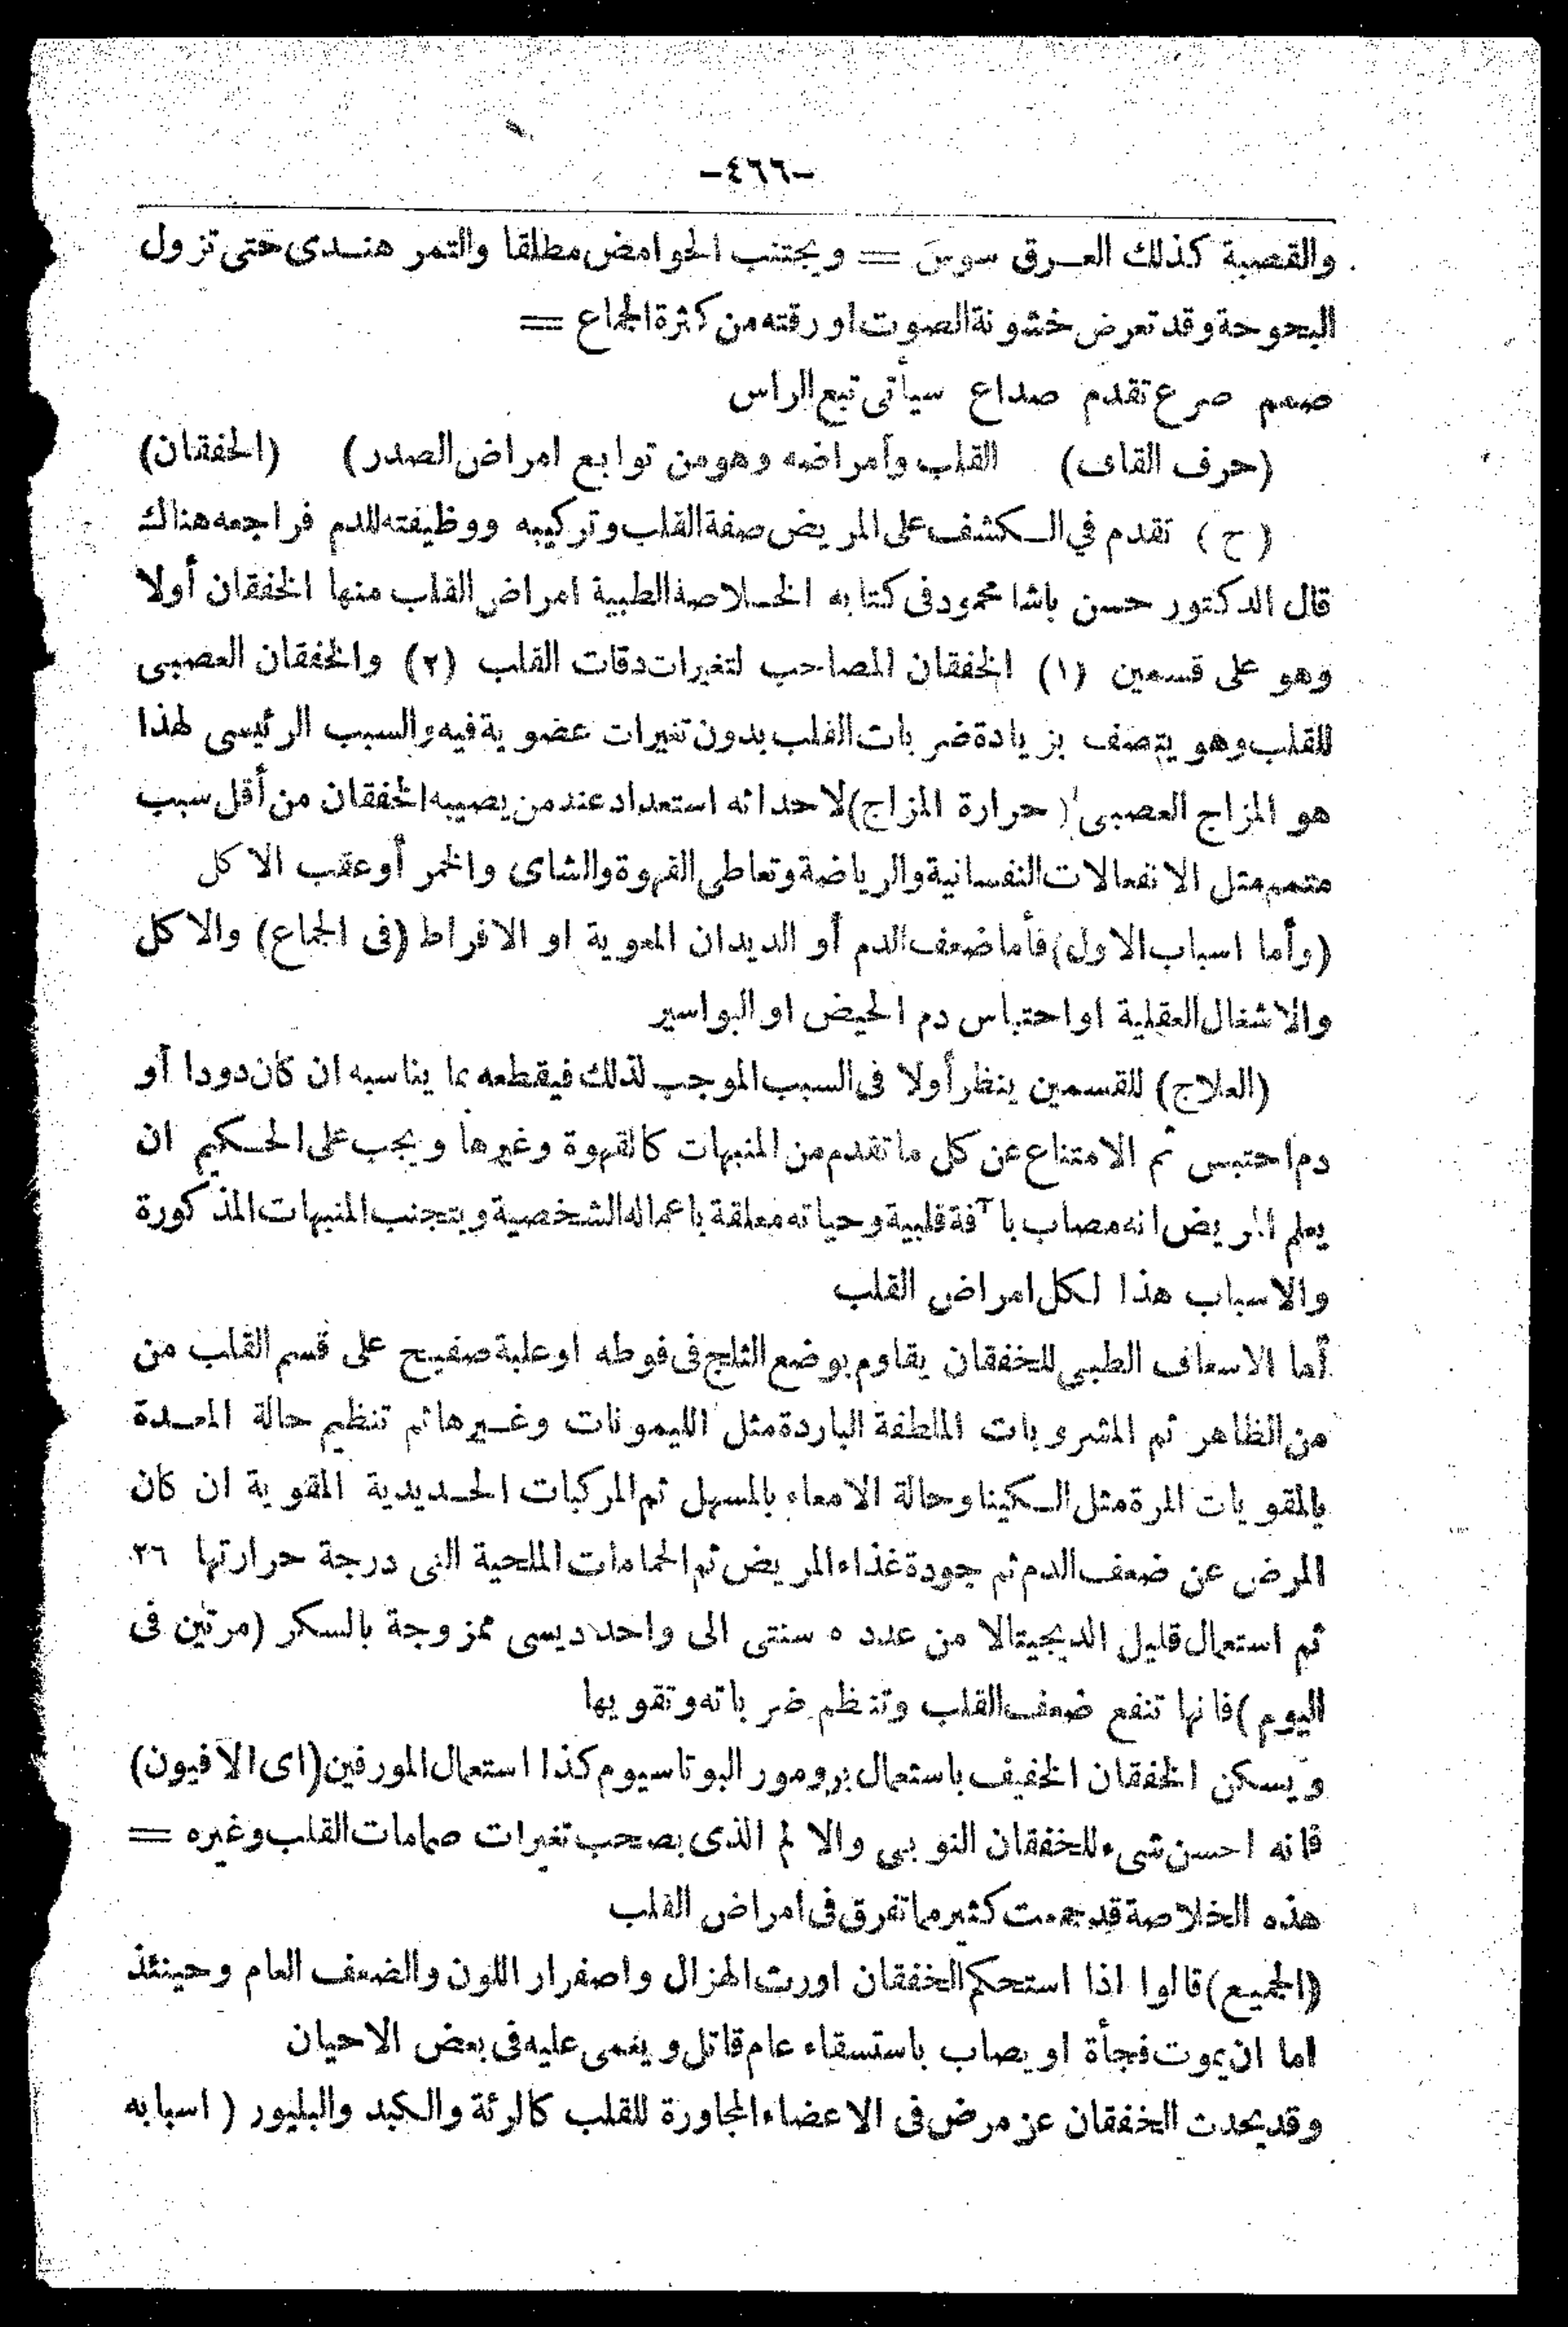 -٤٦٦-
والقصبة كذلك العرق سوس = ويجتنب الحوامض مطلقا والتمر هندى حتى تزول
البحوحة وقد تعرض خشونة الصوت او رقته من كثرة الجماع =
صمم صرع تقدم صداع سيأتى تبع الراس
(حرف القاف) القلب وأمراضه وهو من توابع امراض الصدر) (الخفقان)
(ح) تقدم في الكشف على المريض صفة القلب وتركيبه ووظيفته للدم فراجعه هناك
قال الدكتور حسن باشا محمود فى كتابه الخلاصة الطبية امراض القلب منها الخفقان أولا
وهو على قسمين (١) الخفقان المصاحب لتغيرات دقات القلب (٢) والخفقان العصبى
للقلب وهو يتصف بزيادة ضربات القلب بدون تغيرات عضوية فيه والسبب الرئيسى لهذا
هو المزاج العصبى (حرارة المزاج) لاحداثه استعداد عند من يصيبه الخفقان من أقل سبب
متمم مثل الانفعالات النفسانية والرياضة وتعاطى القهوة والشاى والخمر أو عقب الاكل
(وأما اسباب الاول) فأما ضعف الدم أو الديدان المعوية او الافراط (فى الجماع) والاكل
والاشغال العقلية او احتباس دم الحيض او البواسير
(العلاج) للقسمين ينظر أولا فى السبب الموجب لذلك فيقطعه بما يناسبه ان كان دودا أو
دم احتبس ثم الامتناع عن كل ما تقدم من المنبهات كالقهوة وغيرها ويجب على الحكيم ان
يعلم المريض انه مصاب با آفة قلبية وحياته معلقة باعماله الشخصية ويتجنب المنبهات المذكورة
والاسباب هذا لكل امراض القلب
أما الاسعاف الطبى للخفقان يقاوم بوضع الثلج فى فوطه او علبة صفيح على قسم القلب من
من الظاهر ثم المشروبات الملطفة الباردة مثل الليمونات وغيرها ثم تنظيم حالة المعدة
بالمقويات المرة مثل الكينا وحالة الامعاء بالمسهل ثم المركبات الحديدية المقوية ان كان
المرض عن ضعف الدم ثم جودة غذاء المريض ثم الحمامات الملحية التى درجة حرارتها ٢٦
ثم استعمال قليل الديجيتالا من عدد ٥ سنتى الى واحد ديسى ممزوجة بالسكر (مرتين فى
اليوم) فانها تنفع ضعف القلب وتنظم ضرباته وتقويها
ويسكن الخفقان الخفيف باستعمال برومور البوتاسيوم كذا استعمال المورفين (اى الافيون)
فانه احسن شىء للخفقان النوبى والالم الذى يصحب تغيرات صمامات القلب وغيره =
هذه الخلاصة قد جمعت كثير مما تفرق فى امراض القلب
(الجميع) قالوا اذا استحكم الخفقان اورث الهزال واصفرار اللون والضعف العام وحينئذ
اما ان يموت فجأة او يصاب باستسقاء عام قاتل ويغمى عليه فى بعض الاحيان
وقد يحدث الخفقان عن مرض فى الاعضاء المجاورة للقلب كالرئة والكبد والبليور (اسبابه